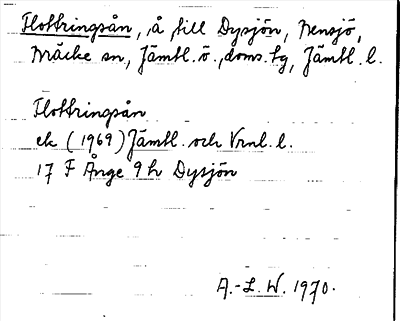 Flottringsån, å till Dysjön, Nensjö,
Bräcke sn, Jämtl. ö., doms. tg, Jämtl. l.
Flottringsån
ek (1969) Jämtl. och Vrnl. l.
17 F Ånge 9 h Dysjön
A.-L. W. 1970.